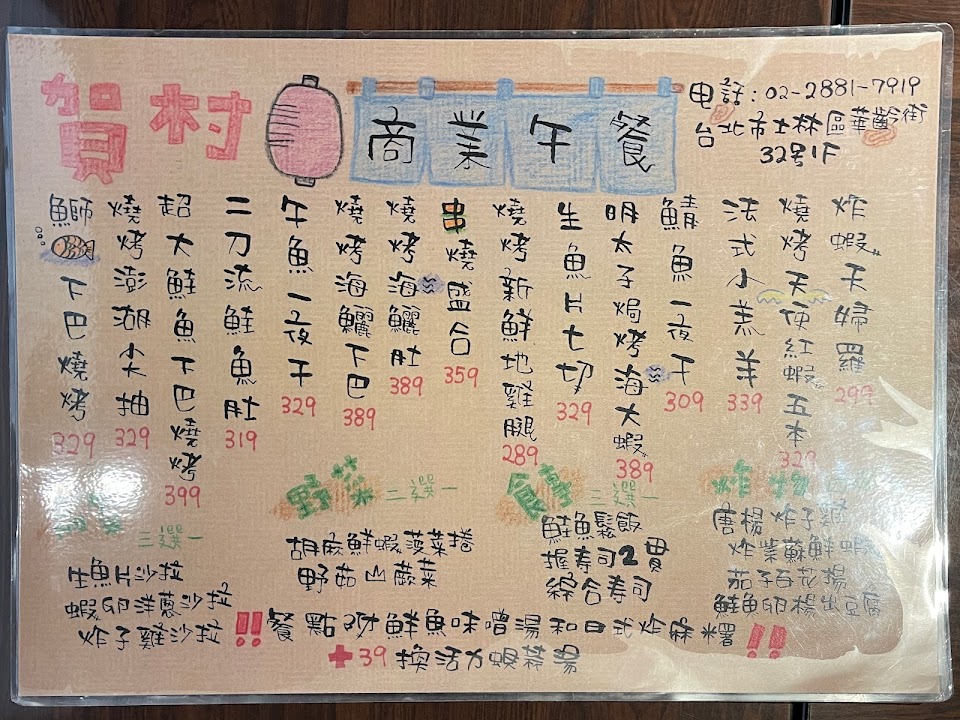 賀村
商業午餐
电話：02-2881-7919
台北市士林區華齡街
32号1F
炸蝦天婦羅 299
燒烤天使紅蝦五本 329
法式小羔羊 339
鯖魚一夜干 309
明太子焗烤海大蝦 389
生魚片七切 329
燒烤新鮮地雞腿 289
串燒盛合 359
燒烤海鱺肚 389
燒烤海鱺下巴 389
午魚一夜干 329
二刀流鮭魚肚 319
超大鮭魚下巴燒烤 399
燒烤澎湖尖抽 329
鰤魚下巴燒烤 329
三選一
生魚片沙拉
蝦卵洋蔥沙拉
炸子雞沙拉
野菜 二選一
胡麻鮮蝦菠菜捲
野菇山蕨菜
食事 三選一
鮭魚鬆飯
握寿司2貫
綜合寿司
炸物
唐楊炸子雞
炸紫蘇鮮蝦
茄子百花揚
鮭魚卵楊出豆腐
!!餐點附鮮魚味噌湯和日式炸麻糬!!
+39換活力蝦蒸湯